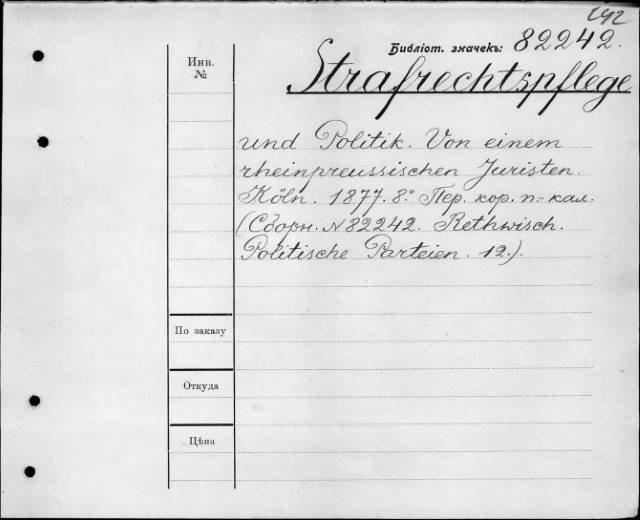 242
Библіот. значекъ: 82242.
Инв.
№
Strafrechtspflege
und Politik. Von einem
rheinpreussischen Juristen.
Köln. 1877. 8.° Пер. кор. п.-кал.
(Сборн. N 82242. Rethwisch.
Politische Parteien. 12.).
По заказу
Откуда
Цѣна